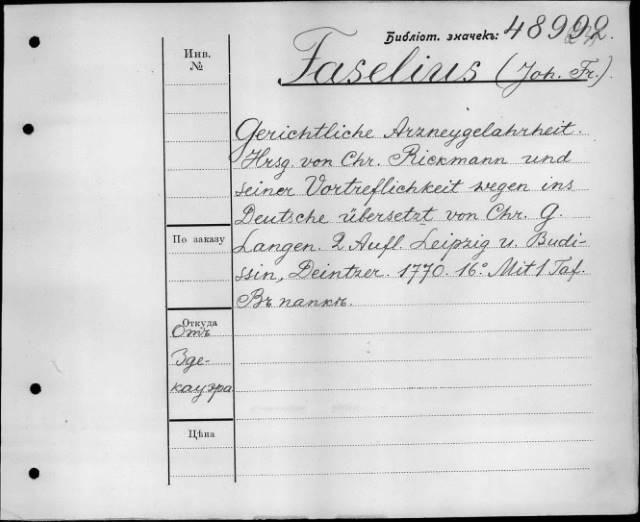 Библіот. значекъ: 48992.
Инв.
№
Faselius (Joh. Fr.).
Gerichtliche Arzneygelahrheit.
Hrsg. von Chr. Rickmann und
seiner Vortreflichkeit wegen ins
Deutsche übersetzt von Chr. G.
По заказу
Langen. 2 Aufl. Leipzig u. Budi-
ssin, Deintzer. 1770. 16°. Mit 1 Taf.
Въ папкѣ.
Откуда
Отъ
Зде-
кауэра
Цѣна